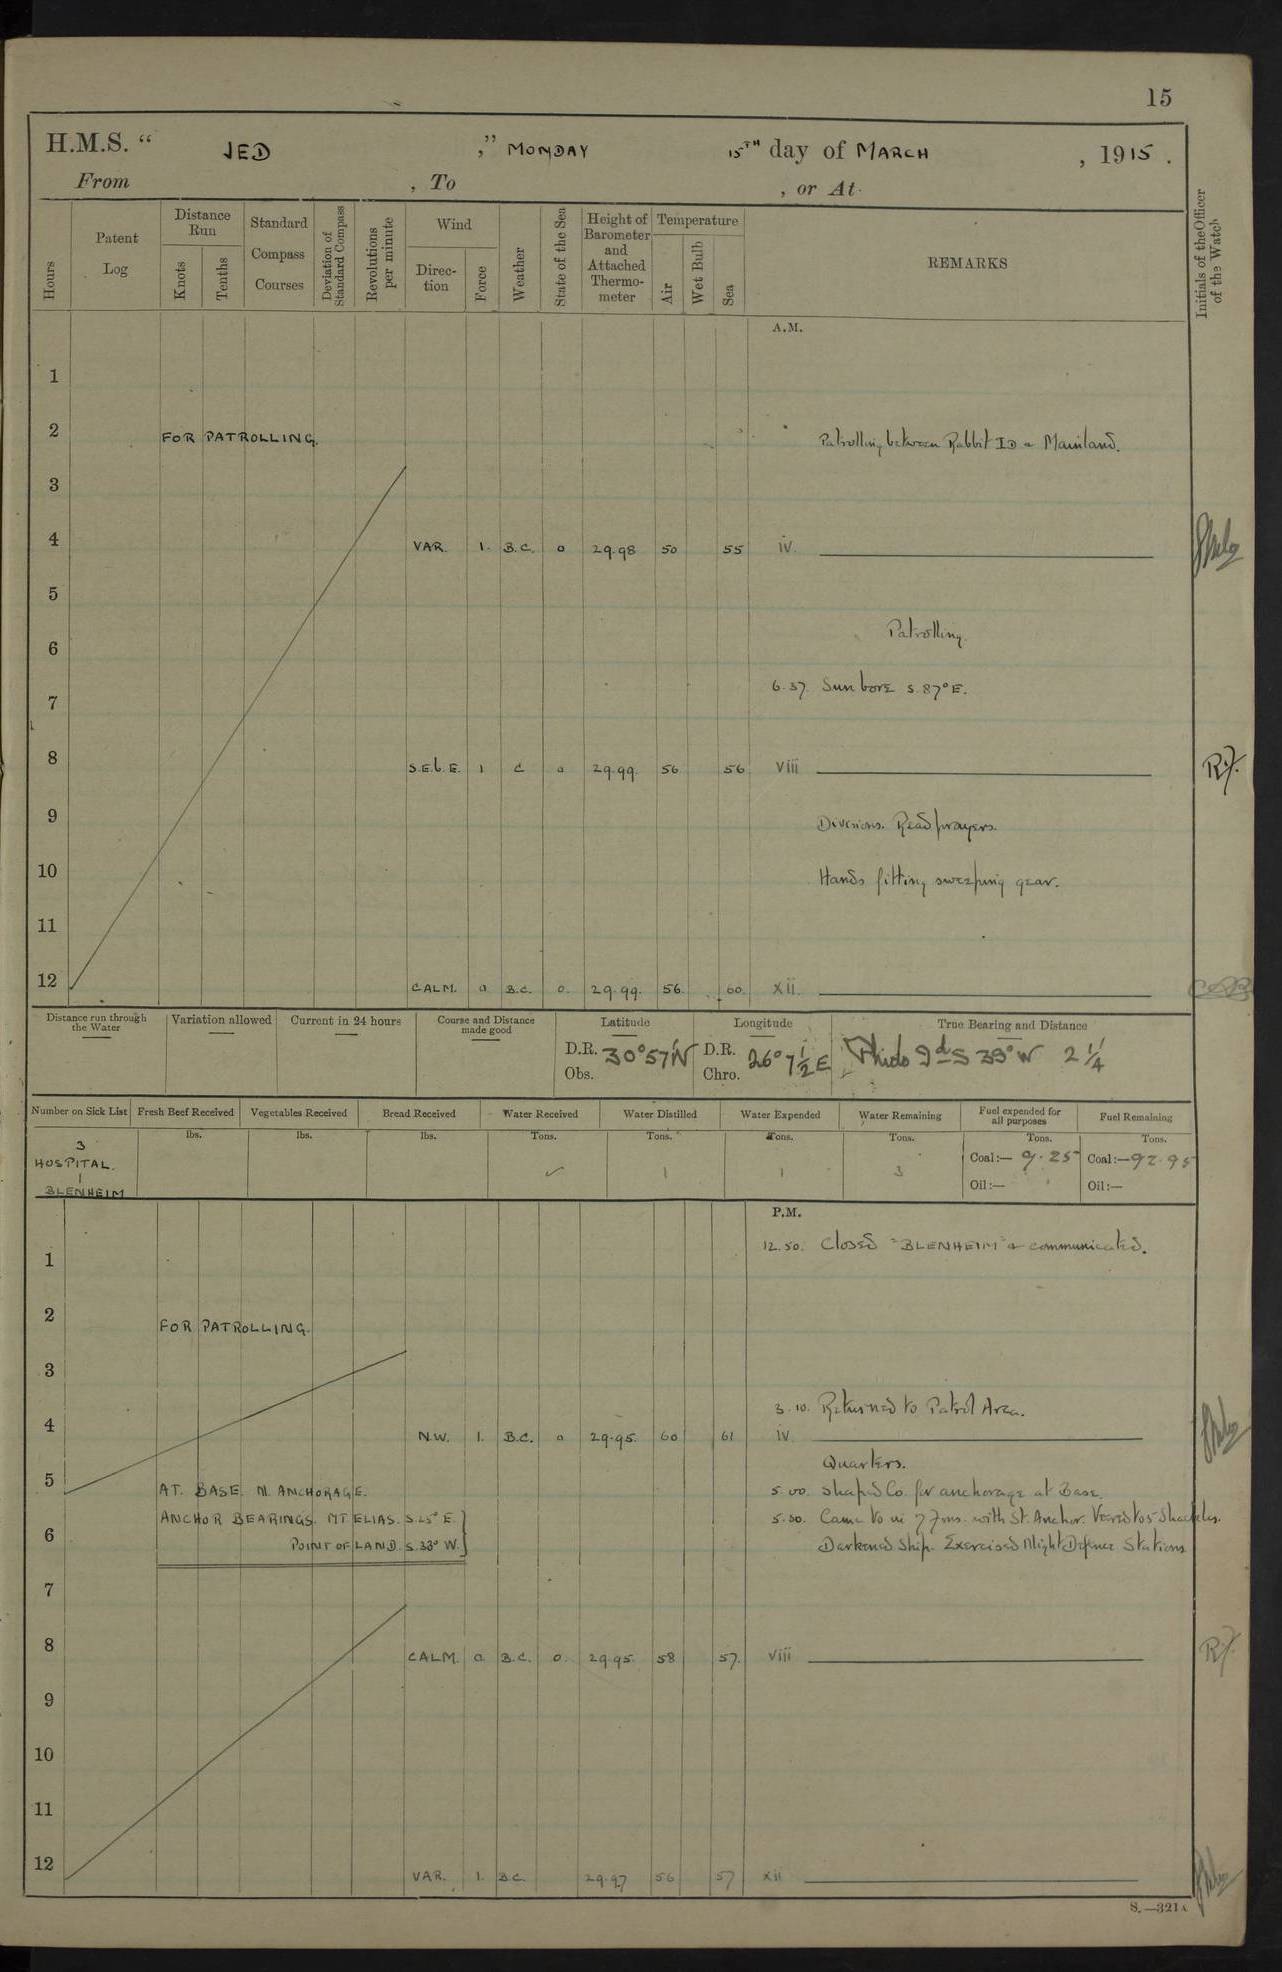 15
H.M.S. “ JED ,” MONDAY 15TH day of MARCH , 1915 .
From , To , or At
Hours
Patent Log
Distance Run
Knots
Tenths
Standard Compass Courses
Deviation of Standard Compass
Revolutions per minute
Wind
Direc-tion
Force
Weather
State of the Sea
Height of Barometer and Attached Thermo-meter
Temperature
Air
Wet Bulb
Sea
REMARKS
Initials of the Officer of the Watch
A.M.
1
2 FOR PATROLLING. Patrolling between Rabbit ID & Mainland.
3
4 VAR. 1. B.C. 0 29.98 50 55 iv.
5
6 Patrolling.
6.37. Sun bore S.87°E.
7
8 S.E.b.E. 1 C 0 29.99. 56 56 viii
9 Divisions. Read prayers.
10 Hands fitting sweeping gear.
11
12 CALM. 0 B.C. 0. 29.99. 56. 60. xii.
Distance run through the Water
Variation allowed
Current in 24 hours
Course and Distance made good
Latitude
D.R. 30°57'N
Obs.
Longitude
D.R. 26°7½E
Chro.
True Bearing and Distance
S 39° W 2¼
Number on Sick List
Fresh Beef Received
Vegetables Received
Bread Received
Water Received
Water Distilled
Water Expended
Water Remaining
Fuel expended for all purposes
Fuel Remaining
lbs. lbs. lbs. Tons. Tons. Tons. Tons. Tons. Tons.
3
HOSPITAL.
1
BLENHEIM
1 1 3
Coal:— 9.25 Coal:—92.95
Oil:— Oil:—
P.M.
12.50. Closed "BLENHEIM" & communicated.
1
2 FOR PATROLLING.
3
3.10. Returned to Patrol Area.
4 N.W. 1. B.C. 0 29.95. 60 61 iv.
Quarters.
5 AT. BASE. N. ANCHORAGE. 5.00. Shaped Co. for anchorage at Base.
ANCHOR BEARINGS. MT ELIAS. S.25° E. 5.30. Came to in 7 fms. with St. Anchor. Veered to 5 Shackles.
6 POINT OF LAND. S.33° W. Darkened Ship. Exercised Night Defence Stations
7
8 CALM. 0. B.C. 0. 29.95. 58 57. viii
9
10
11
12 VAR. 1. B.C. 29.97 56 57 xii
S.—321A